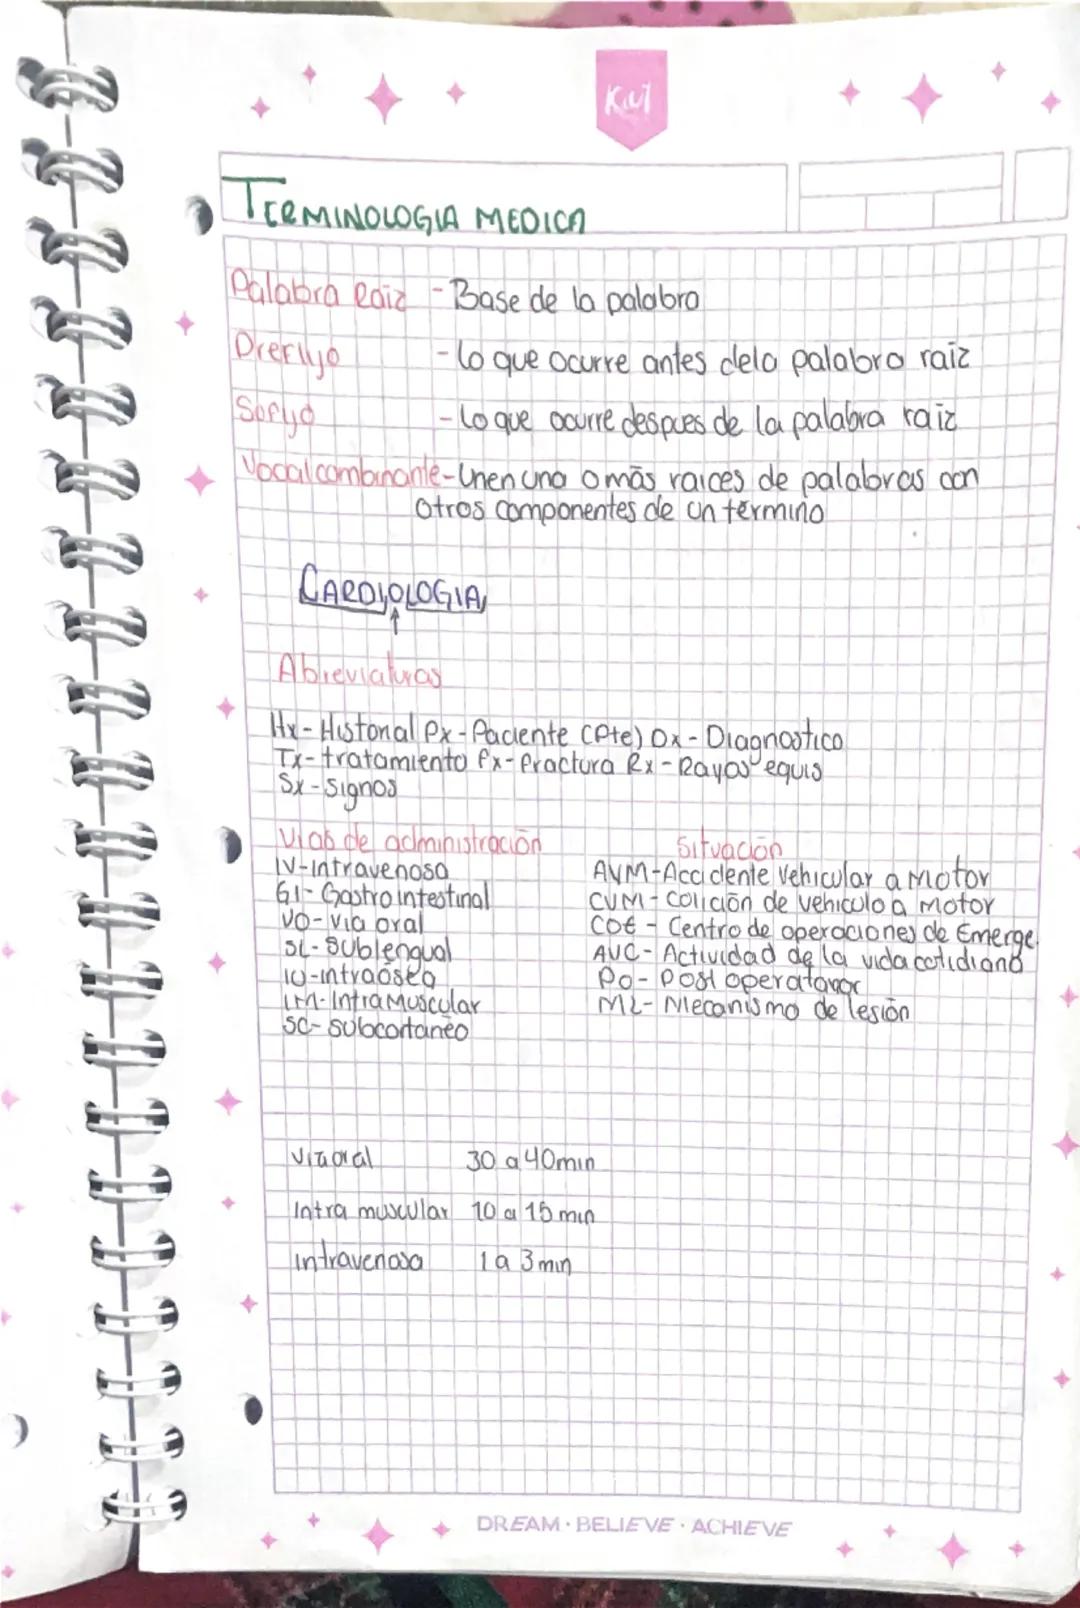 Kiut
TERMINOLOGIA MEDICA
Palabra Raiz - Base de la palabra
Prefiyo - Lo que ocurre antes dela palabra raiz
Sofyo - Lo que ocurre despues de la palabra raiz
Vocal combinante - Unen una o más raices de palabras con
otros componentes de un término
CARDIOLOGIA
Abreviaturas
Hx - Historial Px - Paciente (Pte) Dx - Diagnostico
Tx - tratamiento fx - fractura Rx - Rayos equis
Sx - Signos
Vias de administración
IV - Intravenosa
GI - Gastrointestinal
VO - Via oral
SL - Sublengual
IO - Intraósea
IM - Intra Muscular
SC - Subcortaneo
Situación
AVM - Accidente Vehicular a Motor
CVM - Colición de vehiculo a motor
COE - Centro de operaciones de Emerge
AVC - Actividad de la vida cotidiana
PO - Post
ML - Mecanismo de lesión
Via oral 30 a 40 min
Intra muscular 10 a 15 min
intravenosa 1 a 3 min
DREAM · BELIEVE · ACHIEVE